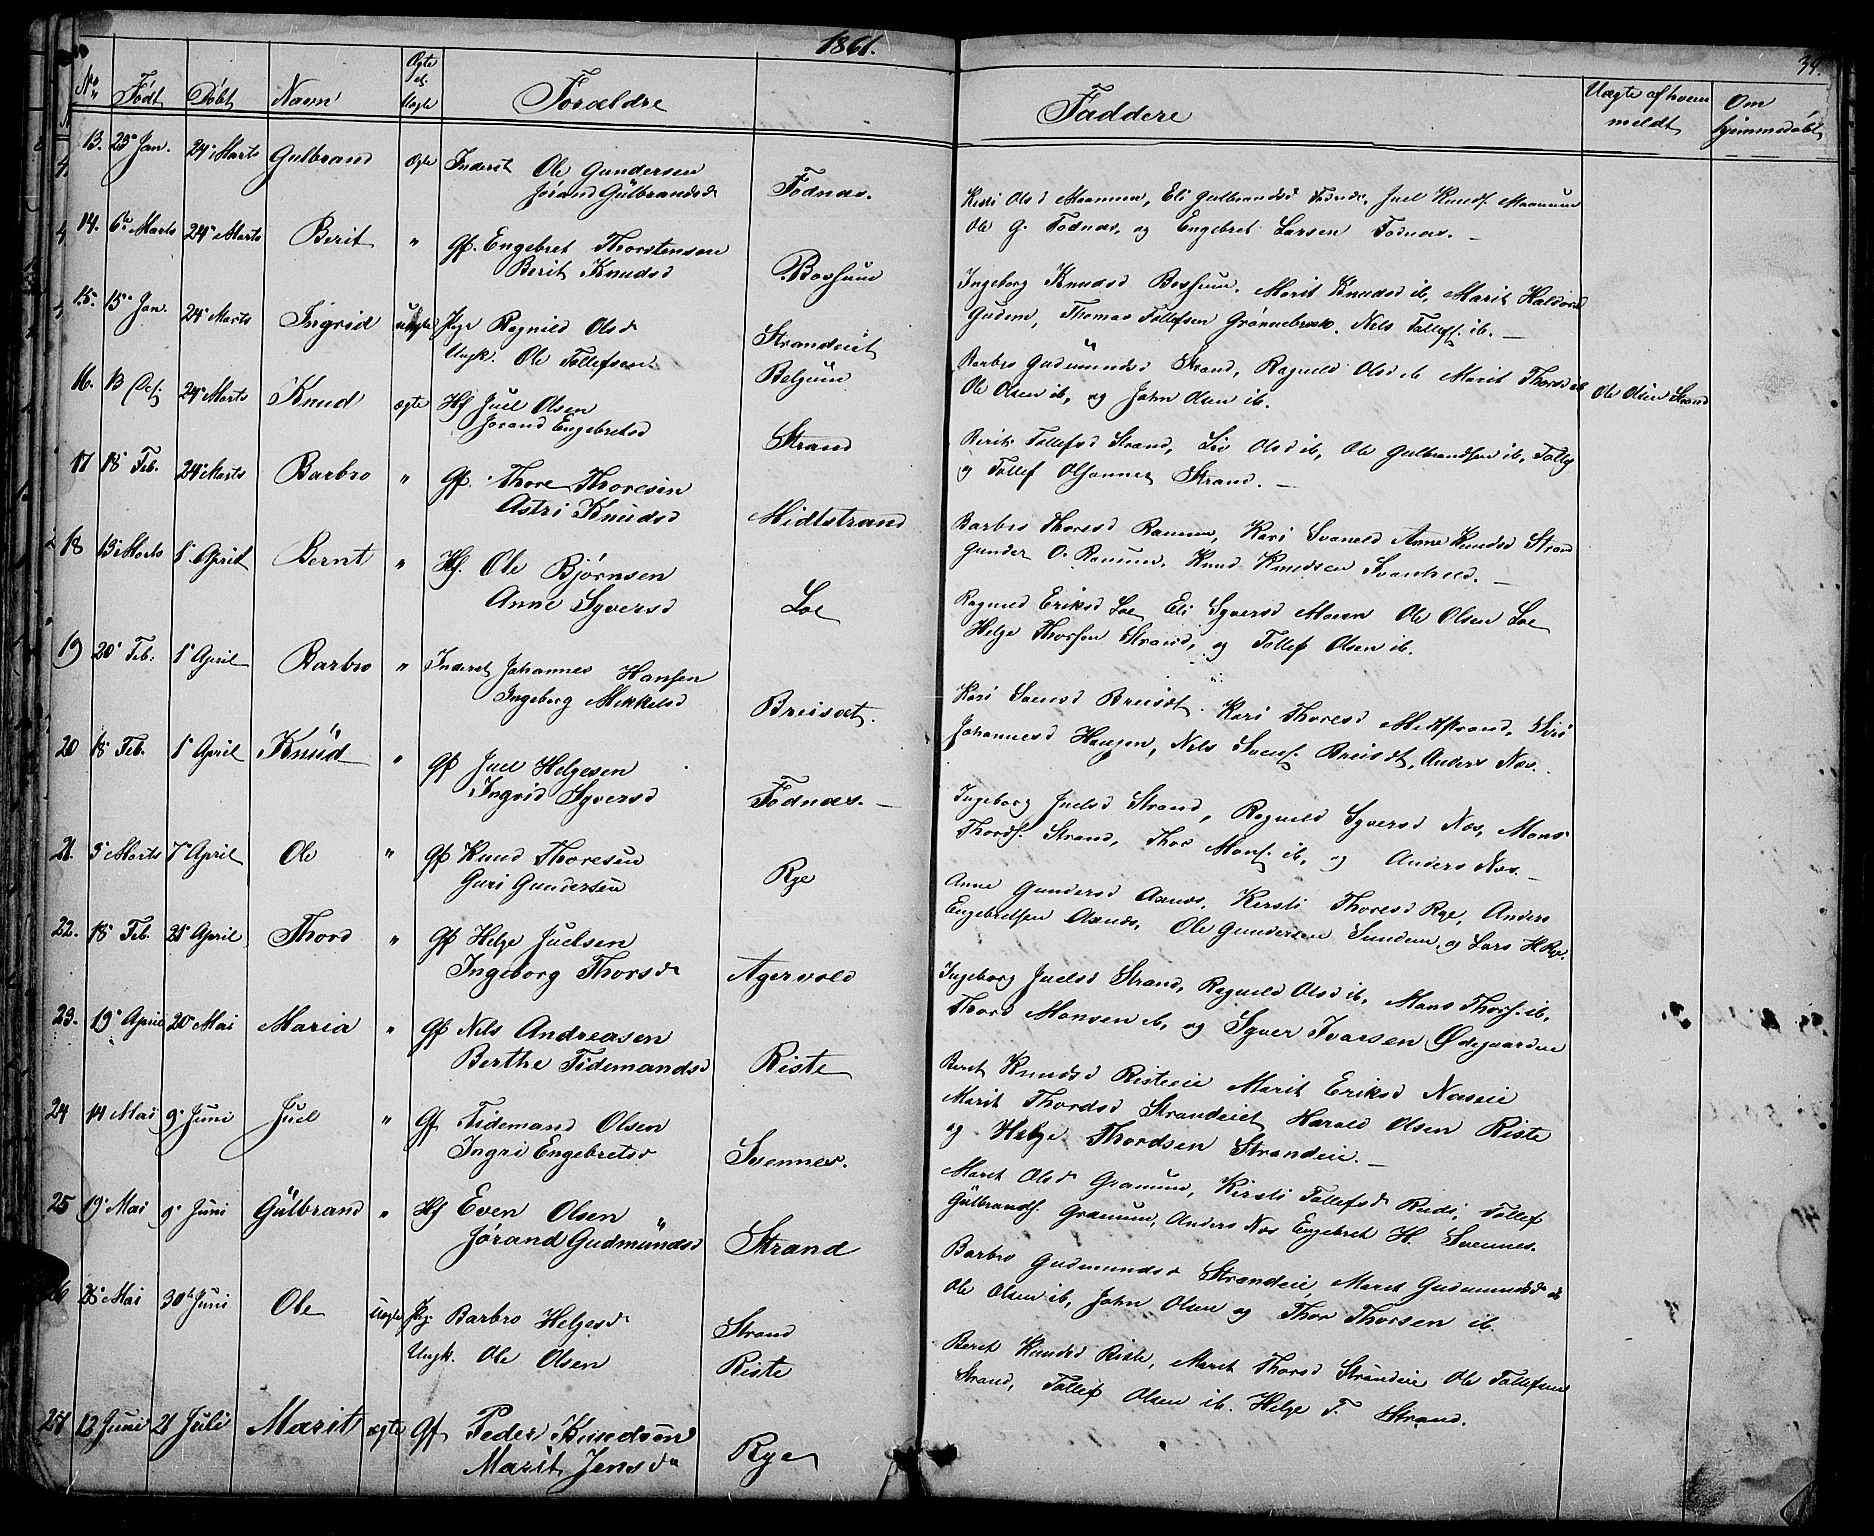 1861.
34.
No Født Døbt Navn Ægte el. Uægte Forældre Faddere Uægte af hvem meldt Om hjemmedøbt
13. 23de Jan. 24de Marts Gulbrand ægte Inderst Ole Gundersen
Jørand Gulbrandsd Fødnæs.
Kirsti Olsd Eli Gulbrandsd Juel Knuds.
Ole G. Fødnæs, og Engebret Larsen Fødnæs. —
14. 6te Marts 24de Marts Berit " Gf. Engebret Thorstensen
Berit Knudsd Bershum
Ingeborg Knudsd Marit Knudsd ib, Marit
Thomas Tollefsen Nels Tollefs. ib. —
15. 15de Jan. 24de Marts Ingrid uægte Pige Ragnild Olsd Strandeiet
Ungk. Ole Tollefsen Belgum
Barbro Gudmundsd Strand, Ragnild Olsd ib Marit Thorsd ib
Ole Olsen ib, og John Olsen ib.
Ole Olsen Strand
16. 13 Oct. 24de Marts Knud ægte Hf Juel Olsen
Jorand Engebretsd Strand
Berit Tollefsd Strand, Liv Olsd ib, Ole Gulbrandsen ib, Tollef
og Tollef Strand. —
17 18de Feb. 24de Marts Barbro " Gf. Thore Thoresen
Astri Knudsd Midtstrand
Barbro Thoresd Kari Anne Knudsd Strand
Gunder O. Knud Knudsen
18 13de Marts 1ste April Bernt " Hf. Ole Bjørnsen
Anne Syversd Loe
Ragnild Eriksd Loe Eli Syversd Ole Olsen Loe
Helge Thorsen Strand, og Tollef Olsen ib.
19 20de Feb. 1ste April Barbro " Inderst Johannes Hansen
Ingeborg Mikkelsd Breisæt.
Kari Svensd Breisæt. Kari Thoresd Midtstrand, Siri
Johannesd Haugen, Nels Svens. Breisæt, Anders Næs.
20 18de Feb. 1ste April Knud " Gf Juel Helgesen
Ingrid Syversd Fødnæs. —
Ingeborg Juelsd Strand, Ragnild Syversd Næs, Mons
Thords. Strand, Thor Mons. ib, og Anders Næs. —
21. 5te Marts 7de April Ole " Gf Knud Thoresen
Guri Gundersen Rye
Anne Gundersd Kirsti Thoresd Rye, Anders
Engebretsen Ole Gundersen og Lars H. Rye.
22. 18de Feb. 21de April Thord " Gf Helge Juelsen
Ingeborg Thorsd Agervold
Ingeborg Juelsd Strand, Ragnild Olsd ib, Mons Thors. ib,
Thord Monsen ib, og Syver Ivarsen Ødegaarden
23. 19de April 20de Mai Maria " Gf Nels Andreasen
Berthe Tidemandsd Riste
Berit Knudsd Risteeie Marit Eriksd Næseie
Marit Thordsd Strandeiet Harald Olsen Riste
og Helge Thordsen Strandeie. —
24 14 Mai 9de Juni Juel " Gf Tidemand Olsen
Ingri Engebretsd Svennes.
Marit Olsd Granum, Kirsti Tollefsd Rudi, Tollef
Gulbrands. Granum, Anders Næs Engebret H. Svennes.
25 19de Mai 9de Juni Gulbrand " Hf Even Olsen
Jørand Gudmundsd Strand
Barbro Gudmundsd Strandeie, Marit Gudmundsd ib
Ole Olsen ib, John Olsen og Thor Thorsen ib.
26 25de Mai 30te Juni Ole Uægte Pig. Barbro Helgesd Strand
Ungk. Ole Olsen Riste
Berit Knudsd Riste, Marit Thorsd Strandeie Ole Tollefsen
Strand, Tollef Olsen ib. Helge T. Strand.
27 12 Juni 21 Juli Marit ægte Gf Peder Knudsen
Marit Jensd Rye